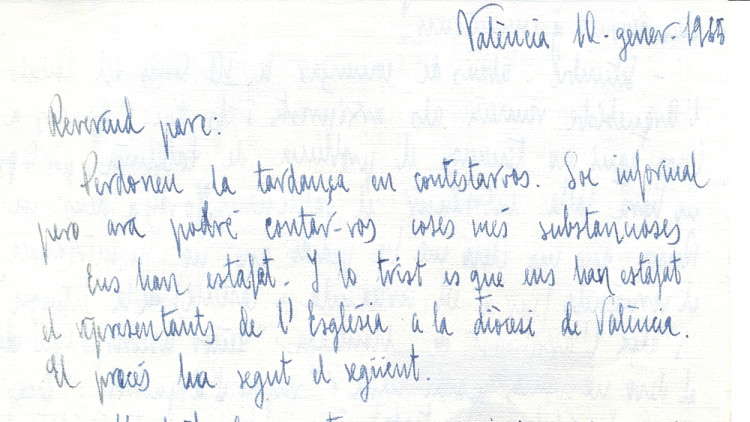 València 12. gener. 1955
Reverend pare:
Perdonen la tardança en contestarvos. Soc informal
pero ara podré contar-vos coses més substancioses
Ens han estafat. I lo trist es que ens han estafat
el representants de l'Església a la diòcesi de València.
El procés ha segut el següent.